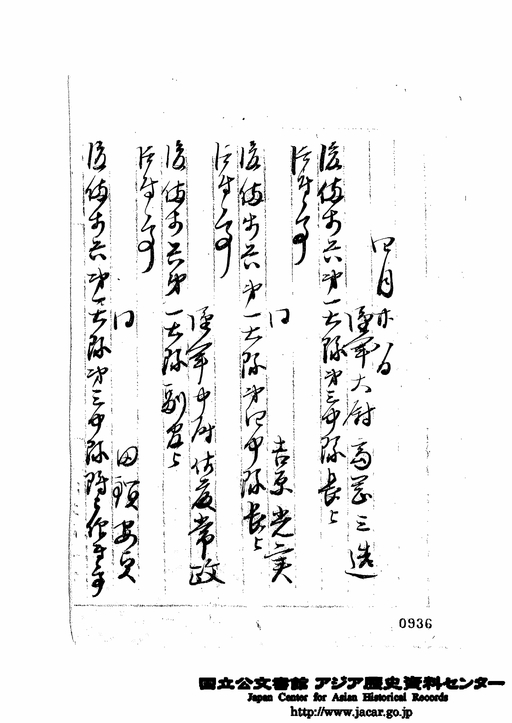 四月廿八日
陸軍大尉高並三造
後備歩兵第一大隊第三中隊長ニ
任付候事
同 吉原光実
後備歩兵第一大隊第四中隊長ニ
任付候事
陸軍中尉佐藤常政
後備歩兵第一大隊副官ニ
任付候事
同 田頭安貞
後備歩兵第一大隊第三中隊附
0936
国立公文書館 アジア歴史資料センター
Japan Center for Asian Historical Records
http://www.jacar.go.jp